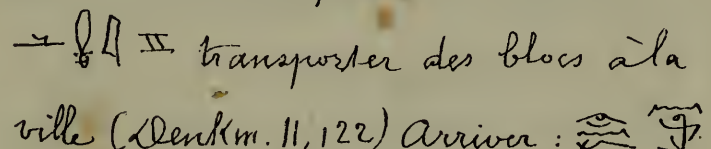 transporter des blocs à la
ville (Denkm. II, 122) Arriver :